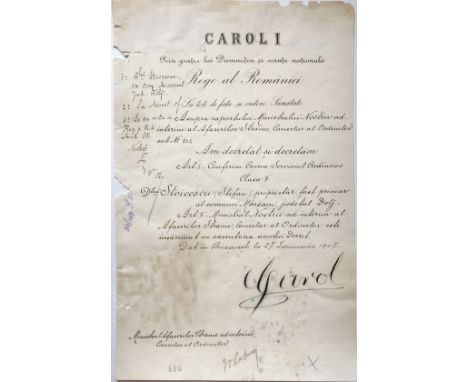 CAROL I
Prin grația lui Dumnedeu și voința națională
Rege al României
La toți de față și viitori, Sănătate
Asupra raportului Ministrului Nostru ad
interim al Afacerilor Străine, Cancelar al Ordinelor
sub Nº 802
Am decretat și decretăm
Art. I. Conferim Crucea Serviciul Credincios
Clasa I
Dlui Stoicescu (Stefan) proprietar fost primar
al comunei Mârșani, județul Dolj.
Art. II. Ministrul Nostru ad interim al
Afacerilor Străine, Cancelar al Ordinelor este
însărcinat cu executarea acestui Decret.
Dat în București la 27 Ianuarie 1907.
Carol
Ministrul Afacerilor Străine ad interim
Cancelar al Ordinelor
416